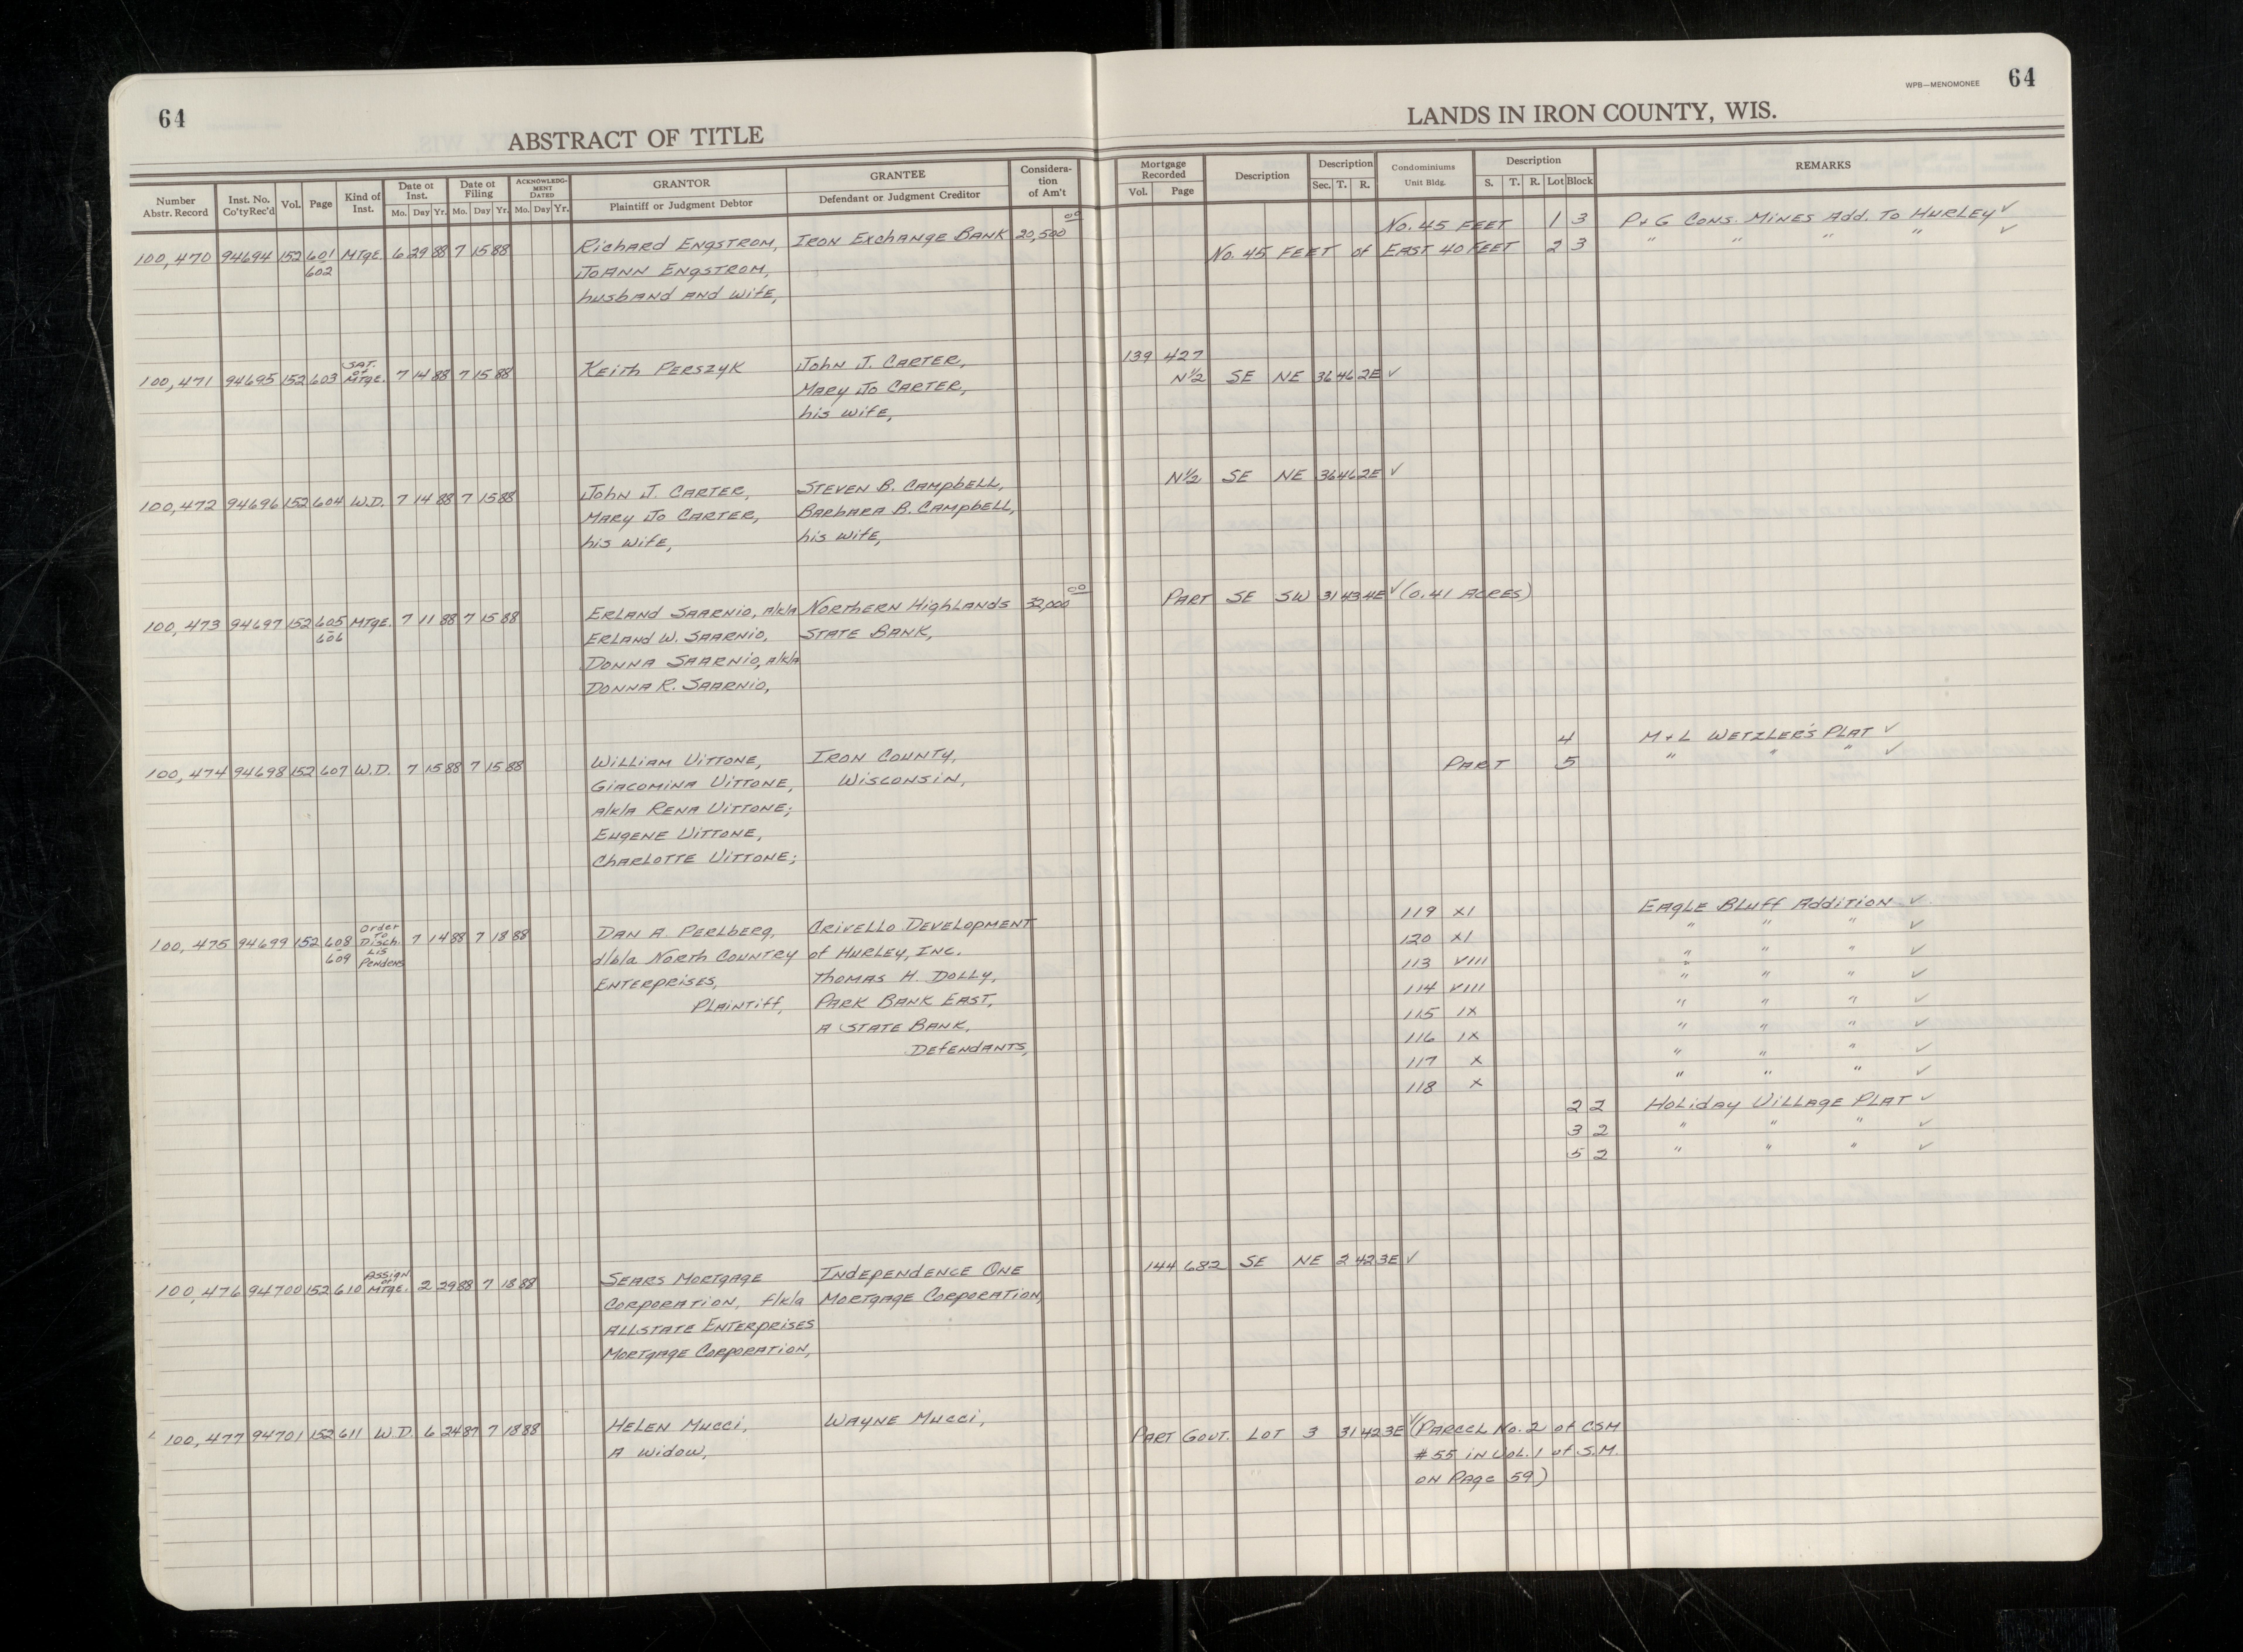 64
ABSTRACT OF TITLE
LANDS IN IRON COUNTY, WIS.
WPB—MENOMONEE 64
Number Abstr. Record
Inst. No. Co'ty Rec'd
Vol.
Page
Kind of Inst.
Date of Inst. Mo. Day Yr.
Date of Filing Mo. Day Yr.
ACKNOWLEDGMENT DATED Mo. Day Yr.
GRANTOR
Plaintiff or Judgment Debtor
GRANTEE
Defendant or Judgment Creditor
Consideration of Am't
Mortgage Recorded Vol. Page
Description
Description Sec. T. R.
Condominiums Unit Bldg.
Description S. T. R. Lot Block
REMARKS
100,470 94694 152 601 MTgE. 6 29 88 7 15 88 Richard Engstrom, Iron Exchange Bank 20,500 00 No. 45 FEET 1 3 P+G Cons. Mines Add. To Hurley ✓
602 JoAnn Engstrom, No. 45 FEET of EAST 40 FEET 2 3 " " " " ✓
husband and wife,
100,471 94695 152 603 SAT. of MTgE. 7 14 88 7 15 88 Keith Perszyk John J. Carter, 139 427
Mary Jo Carter, N½ SE NE 36 46 2E ✓
his wife,
100,472 94696 152 604 W.D. 7 14 88 7 15 88 John J. Carter, Steven B. Campbell, N½ SE NE 36 46 2E ✓
Mary Jo Carter, Barbara B. Campbell,
his wife, his wife,
100,473 94697 152 605 MTgE. 7 11 88 7 15 88 Erland Saarnio, a/k/a Northern Highlands 32,000 00 PART SE SW 31 43 4E ✓ (0.41 ACRES)
606 Erland W. Saarnio, State Bank,
Donna Saarnio, a/k/a
Donna R. Saarnio,
100,474 94698 152 607 W.D. 7 15 88 7 15 88 William Vittone, Iron County, 4 M+L Wetzler's Plat ✓
Giacomina Vittone, Wisconsin, PART 5 " " " ✓
a/k/a Rena Vittone;
Eugene Vittone,
Charlotte Vittone;
100,475 94699 152 608 Order To Disch. Lis Pendens 7 14 88 7 18 88 Dan A. Perlberg, Crivello Development 119 XI Eagle Bluff Addition ✓
609 d/b/a North Country of Hurley, Inc. 120 XI " " " ✓
Enterprises, Thomas H. Dolly, 113 VIII " " " ✓
Plaintiff, Park Bank East, 114 VIII " " " ✓
A State Bank, 115 IX " " " ✓
Defendants, 116 IX " " " ✓
117 X " " " ✓
118 X " " " ✓
2 2 Holiday Village Plat ✓
3 2 " " " ✓
5 2 " " " ✓
100,476 94700 152 610 Assign of MTgE. 2 29 88 7 18 88 Sears Mortgage Independence One 144 682 SE NE 2 42 3E ✓
Corporation, f/k/a Mortgage Corporation,
Allstate Enterprises
Mortgage Corporation,
100,477 94701 152 611 W.D. 6 24 87 7 18 88 Helen Mucci, Wayne Mucci, PART GOVT. LOT 3 31 42 3E ✓ (Parcel No. 2 of CSM
A widow, #55 in Vol. 1 of S.M.
on Page 59)